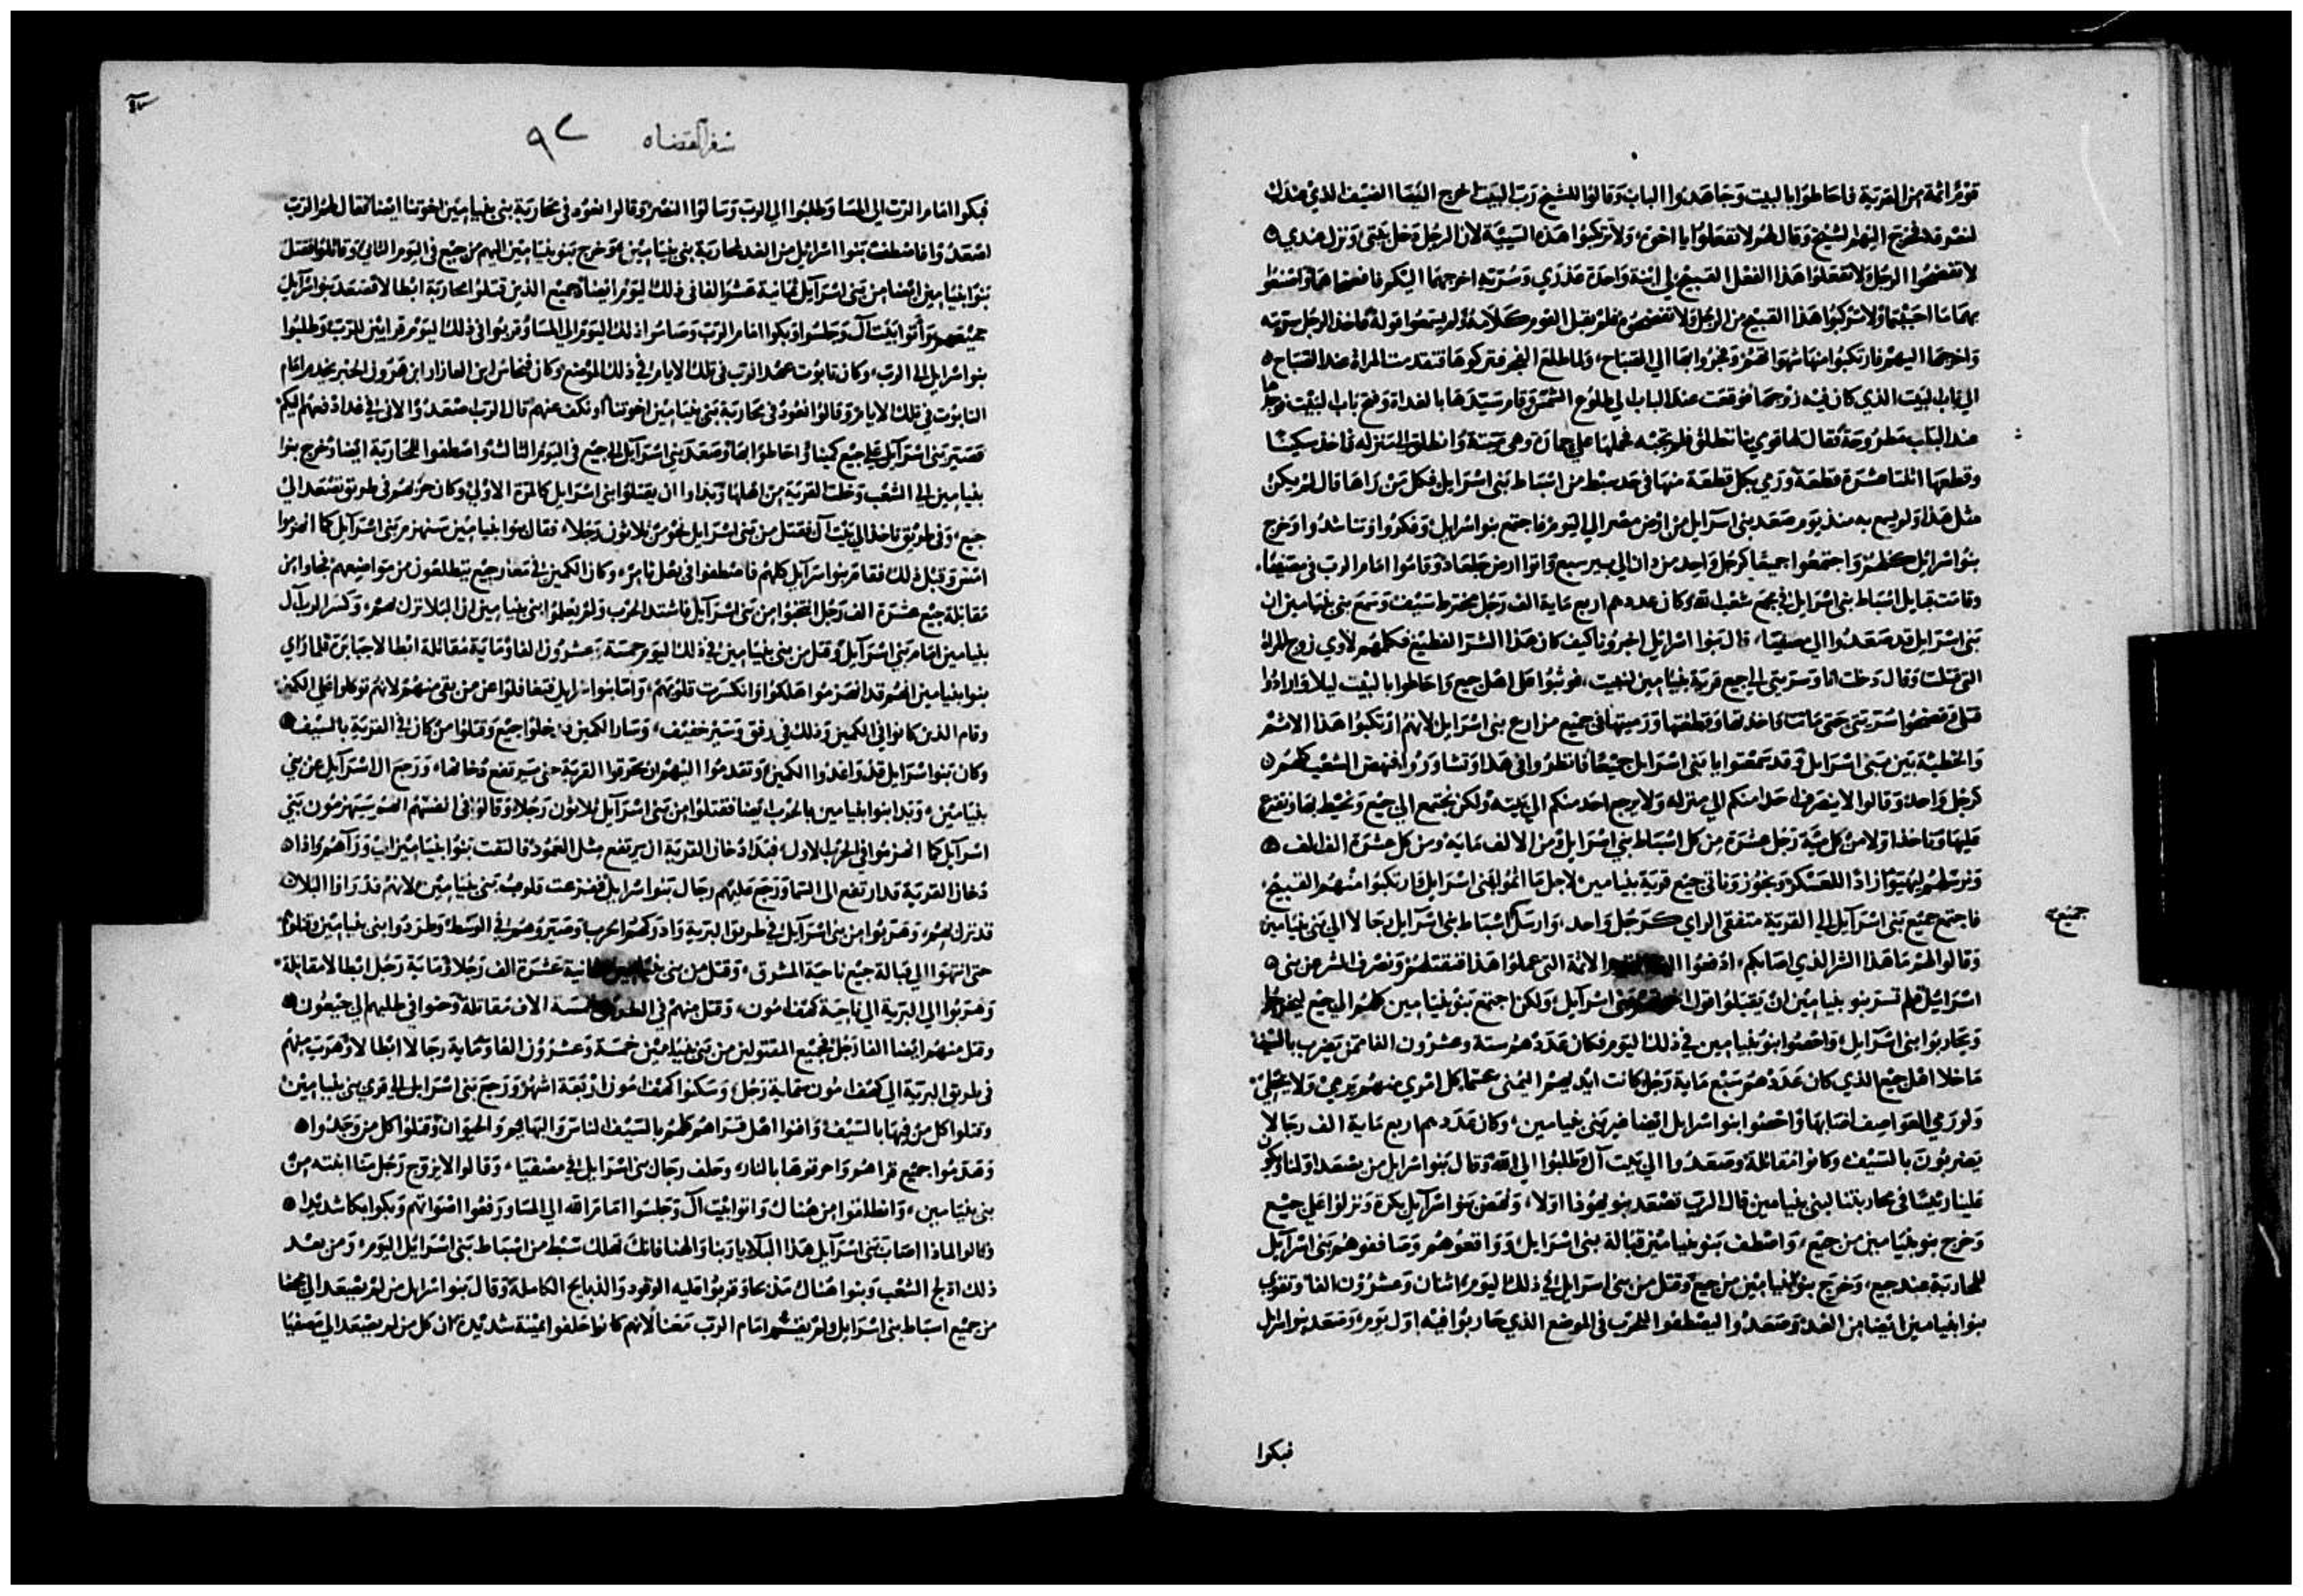 قوم اثمة من القرية فاحاطوا بالبيت وجاهدوا الباب وقالوا للشيخ رب البيت اخرج الينا الضيف الذي عندك
لنفسقه فخرج اليهم الشيخ وقال لهم لا تفعلوا يا اخوة ولا ترتكبوا هذه السيية لان الرجل دخل بيتي ونزل عندي
لا تفضحوا الرجل ولا تفعلوا هذا الفعل القبيح لي ابنة واحدة عذري وسريته اخرجهما اليكم فافضحاهما واصنعوا
بهما ما احببتم ولا ترتكبوا هذا القبيح من الرجل ولا تفضحوه فلم يقبل القوم كلامه ولم يسمعوا قوله فاخذ الرجل سريته
واخرجها اليهم فارتكبوا منها شهواتهم وفجروا بها الي الصباح ولما طلع الفجر تركوها فتقدمت المراة عند الصباح
الي باب البيت الذي كان فيه زوجها فوقعت عند الباب الي طلوع الشمس وقام سيدها بالغداة وفتح باب البيت فوجدها
عند الباب مطروحة فقال لها قومي بنا ننطلق فلم تجبه فحملها علي حمار وهي ميتة وانطلق الي منزله فاخذ سكينا
وقطعها اثنتا عشرة قطعة ورمي بكل قطعة منها في حد سبط من اسباط بني اسرايل فكل من راها قال لم يكن
مثل هذا ولم يسمع به منذ يوم صعد بني اسرايل من ارض مصر الي اليوم فاجتمع بنو اسرايل وفكروا وتناشدوا وخرج
بنوا اسرايل كلهم واجتمعوا جميعا كرجل واحد من دان الي بير سبع واتوا ارض جلعاد وقاموا امام الرب في مصفيا
وقامت قبايل اسباط بني اسرايل في مجمع شعب الله وكان عددهم اربع ماية الف رجل مخترط سيف وسمع بني بنيامين ان
بني اسرايل قد صعدوا الي مصفيا قال بنوا اسرايل اخبرونا كيف كان هذا الشر الفظيع فكلمهم لاوي زوج المراة
التي قتلت وقال دخلت انا وسريتي الي جبع قرية بنيامين لنبيت فوثبوا علي اهل جبع واحاطوا بالبيت ليلا وارادوا
قتلي وفضحوا سريتي حتي ماتت فاخذتها وقطعتها ورميتها في جميع مزارع بني اسرايل لانهم ارتكبوا هذا الاثم
والخطية بين بني اسرايل وقد سمعتوا يا بني اسرايل جميعا فانظروا في هذا وتشاوروا فنهض الشعب كلهم
كرجل واحد وقالوا لا ينصرف احدا منكم الي منزله ولا يرجع احد منكم الي بيته ولكن نجتمع الي جبع ونحيط بها ونقترع
عليها وناخذ اولا من كل مية رجل عشرة من كل اسباط بني اسرايل ومن الالف ماية ومن كل عشرة الف الف
ونرسلهم ليهيوا زادا للعسكر ونجوز وناتي جبع قرية بنيامين لاجل ما اثموا بني اسرايل وارتكبوا منهم القبيح
فاجتمع جميع بني اسرايل الي القرية متفقي الراي كرجل واحد وارسل اسباط بني اسرايل رجالا الي بني بنيامين
جميع
وقالوا لهم ما هذا الشر الذي اصابكم ادفعوا الينا القوم الاثمة التي عملوا هذا فنقتلهم ونصرف الشر من بني
اسرايل فلم تسر بنو بنيامين ان يقبلوا قول اخوتهم بني اسرايل ولكن اجتمع بنو بنيامين كلهم الي جبع ليخرجوا
ويحاربوا بني اسرايل واحصوا بنو بنيامين في ذلك اليوم فكان عددهم ستة وعشرون الفا ممن يضرب بالسيف
ما خلا اهل جبع الذي كان عددهم سبع ماية رجل كانت ايديهم اليمني عسما كل امري منهم يرمي ولا يخطي
ولو رمي العواصف اصابها واحصوا بنوا اسرايل ايضا غير بني بنيامين وكان عددهم اربع ماية الف رجالا
يضربون بالسيف وكانوا مقاتلة وصعدوا الي بيت ال وطلبوا الي الله وقال بنوا اسرايل من يصعد اولنا ويكون
علينا رييسا في محاربتنا لبني بنيامين قال الرب تصعد بنو يهوذا اولا ونهض بنوا اسرايل بكرة ونزلوا علي جبع
وخرج بنو بنيامين من جبع واصطف بنو بنيامين قبالة بني اسرايل وواقعوهم وصاففوهم بني اسرايل
للمحاربة عند جبع وخرج بنوا بنيامين من جبع وقتل من بني اسرايل في ذلك اليوم اثنان وعشرون الفا وتقوي
بنوا بنيامين ايضا من الغد وصعدوا ليصطفوا للحرب في الموضع الذي حاربوا فيه اول يوم وصعد بنوا اسرايل
فبكوا
سفر القضاه ٩٢
فبكوا امام الرب الي المسا وطلبوا الي الرب وسالوا النصر وقالوا نعود في محاربة بني بنيامين اخوتنا ايضا فقال لهم الرب
اصعدوا فاصطفت بنوا اسرايل من الغد لمحاربة بني بنيامين وخرج بنو بنيامين اليهم من جبع في اليوم الثاني وقاتلوا فقتل
بنوا بنيامين ايضا من بني اسرايل ثمانية عشر الفا في ذلك اليوم ايضا جميع الذين قتلوا محاربة ابطالا فصعد بنوا اسرايل
جميعهم وأتوا بيت ال وجلسوا وبكوا امام الرب وصاموا ذلك اليوم الي المسا وقربوا في ذلك اليوم قرابين للرب وطلبوا
بنو اسرايل الي الرب وكان تابوت عهد الرب في تلك الايام في ذلك الموضع وكان فنحاس ابن العازار ابن هرون الحبر يخدم امام
التابوت في تلك الايام وقالوا نعود في محاربة بني بنيامين اخوتنا او نكف عنهم قال الرب اصعدوا لاني في غد ادفعهم اليكم
فصير بني اسرايل علي جبع كمينا واحاطوا بها وصعد بني اسرايل الي جبع في اليوم الثالث واصطفوا للمحاربة ايضا وخرج بنوا
بنيامين الي الشعب وخلت القرية من اهلها وبداوا ان يقتلوا بني اسرايل كالمرة الاولي وكان حربهم في طريق تصعد الي
جبع وفي طريق تاخذ الي بيت ال فقتل من بني اسرايل نحو من ثلاثون رجلا فقال بنوا بنيامين سنهزم بني اسرايل كما انهزموا
امس وقبل ذلك فقام بنوا اسرايل كلهم فاصطفوا في بعل تامر وكان الكمين في مغار جبع يتطلعون من مواضعهم فجاوا من
مقابلة جبع عشرة الف رجل انتخبوا من بني اسرايل فاشتد الحرب ولم يعلموا بني بنيامين ان البلا نزل بهم وكسر الرب ال
بنيامين امام بني اسرايل وقتل من بني بنيامين في ذلك اليوم خمسة وعشرون الفا وماية مقاتلة ابطالا جبابرة فلما راي
بنوا بنيامين انهم قد انهزموا هلكوا وانكسرت قلوبهم واما بنوا اسرايل فتغافلوا عن من بقي منهم لانهم توكلوا علي الكمين
وقام الذين كانوا في الكمين وذلك في رفق وسير خفيف وسار الكمين فدخلوا جبع وقتلوا من كان في القرية بالسيف
وكان بنوا اسرايل قد واعدوا الكمين وتقدموا اليهم ان يحرقوا القرية حتي يرتفع دخانها ورجع ال اسرايل عن بني
بنيامين وبدا بنوا بنيامين بالحرب ايضا فقتلوا من بني اسرايل ثلاثون رجلا وقالوا في انفسهم انهم سينهزمون بني
اسرايل كما انهزموا في الحرب الاول فبدا دخان القرية ان يرتفع مثل العمود فالتفت بنوا بنيامين الي وراهم واذا
دخان القرية قد ارتفع الي السما ورجع عليهم رجال بنوا اسرايل ففزعت قلوب بني بنيامين لانهم قد راوا البلا
قد نزل بهم وهربوا من بني اسرايل في طريق البرية وادركهم الحرب وصيروهم في الوسط وطردوا بني بنيامين وقتلوا
حتي انتهوا الي قبالة جبع ناحية المشرق وقتل من بني بنيامين ثمانية عشرة الف رجلا وماية رجل ابطالا مقاتلة
وهربوا الي البرية الي ناحية كهف رمون وقتل منهم في الطريق خمسة الاف مقاتلة وحنوا في طلبهم الي جبعون
وقتل منهم ايضا الفا رجل فجميع المقتولين من بني بنيامين خمسة وعشرون الفا وماية رجالا ابطالا وهرب منهم
في طريق البرية الي كهف رمون ستماية رجل وسكنوا كهف رمون اربعة اشهر ورجع بني اسرايل الي قري بني بنيامين
وقتلوا كل من فيها بالسيف وافنوا اهل قراهم كلهم بالسيف الناس والبهايم والحيوان وقتلوا كل من وجدوا
وهدموا جميع قراهم واحرقوها بالنار وحلف رجال بني اسرايل في مصفيا وقالوا لا يزوج رجل منا ابنته من
بني بنيامين وانطلقوا من هناك واتوا بيت ال وجلسوا امام الله الي المسا ورفعوا اصواتهم وبكوا بكا شديدا
وقالوا لماذا اصاب بني اسرايل هذا البلا يا ربنا والهنا فانك تهلك سبط من اسباط بني اسرايل اليوم ومن بعد
ذلك ادلج الشعب وبنوا هناك مذبحا وقربوا عليه الوقود والذبايح الكاملة وقال بنوا اسرايل من لم يصعد الي هاهنا
من جميع اسباط بني اسرايل ولم يقم امام الرب معنا لانهم كانوا حلفوا يمينة شديدة ان كل من لم يصعد الي مصفيا